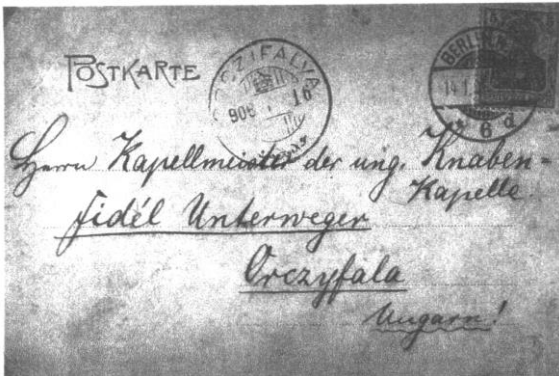 POSTKARTE
ORCZIFALVA
908 16
BERLIN
14.1
6 d
Herrn Kapellmeister der ung. Knaben=
Kapelle
Fidél Unterweger
Orczyfala
Ungarn!